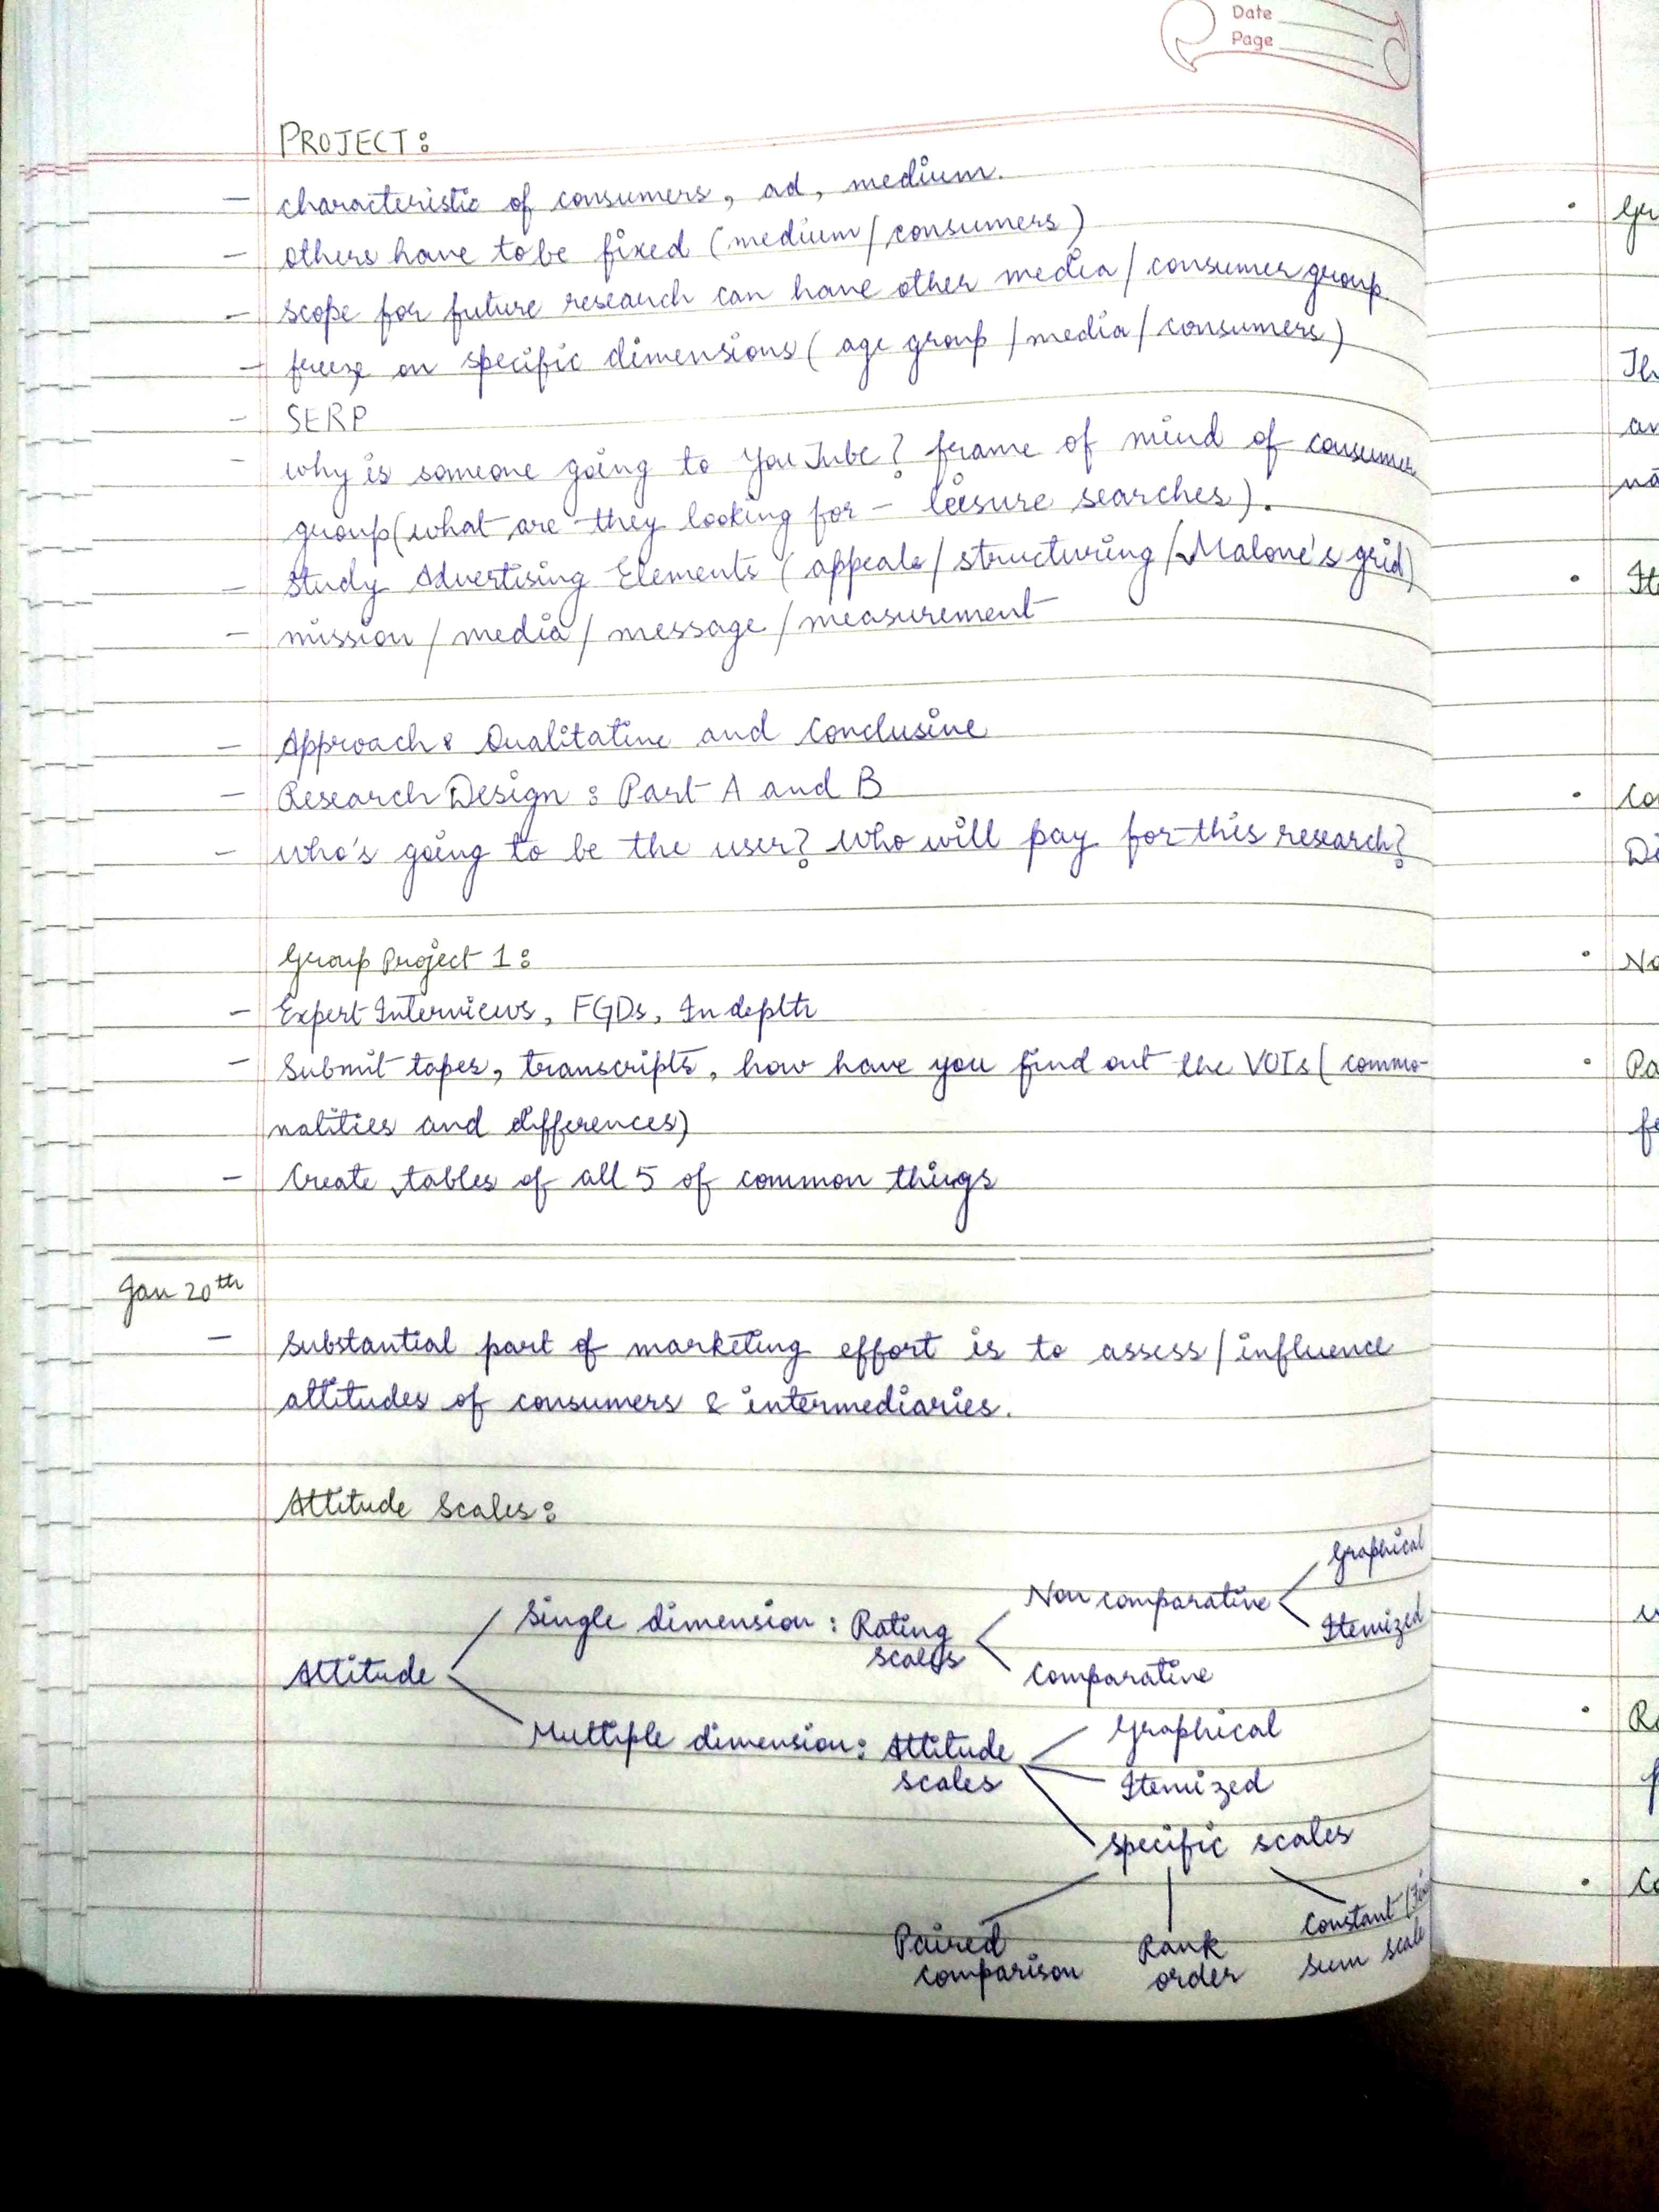 Date
Page
PROJECT:
- characteristic of consumers, ad, medium.
- others have to be fixed (medium/consumers)
- scope for future research can have other media/consumer group.
- freeze on specific dimensions (age group/media/consumers)
- SERP
- why is someone going to YouTube? frame of mind of consumer
group (what are they looking for - leisure searches).
- Study Advertising Elements (appeals/structuring/Malone's grid)
- mission/media/message/measurement
- Approach: Qualitative and Conclusive
- Research Design: Part A and B
- Who's going to be the user? Who will pay for this research?
Group Project 1:
- Expert Interviews, FGDs, In depth
- Submit tapes, transcripts, how have you find out the VOIs (commo-
nalities and differences)
- Create tables of all 5 of common things
Jan 20th
- Substantial part of marketing effort is to assess/influence
attitudes of consumers & intermediaries.
Attitude Scales:
Graphical
Non comparative
Itemized
Single dimension: Rating
scales
Comparative
Attitude
Multiple dimension: Attitude
scales
Graphical
Itemized
Specific scales
Paired
comparison
Rank
order
Constant
sum scale